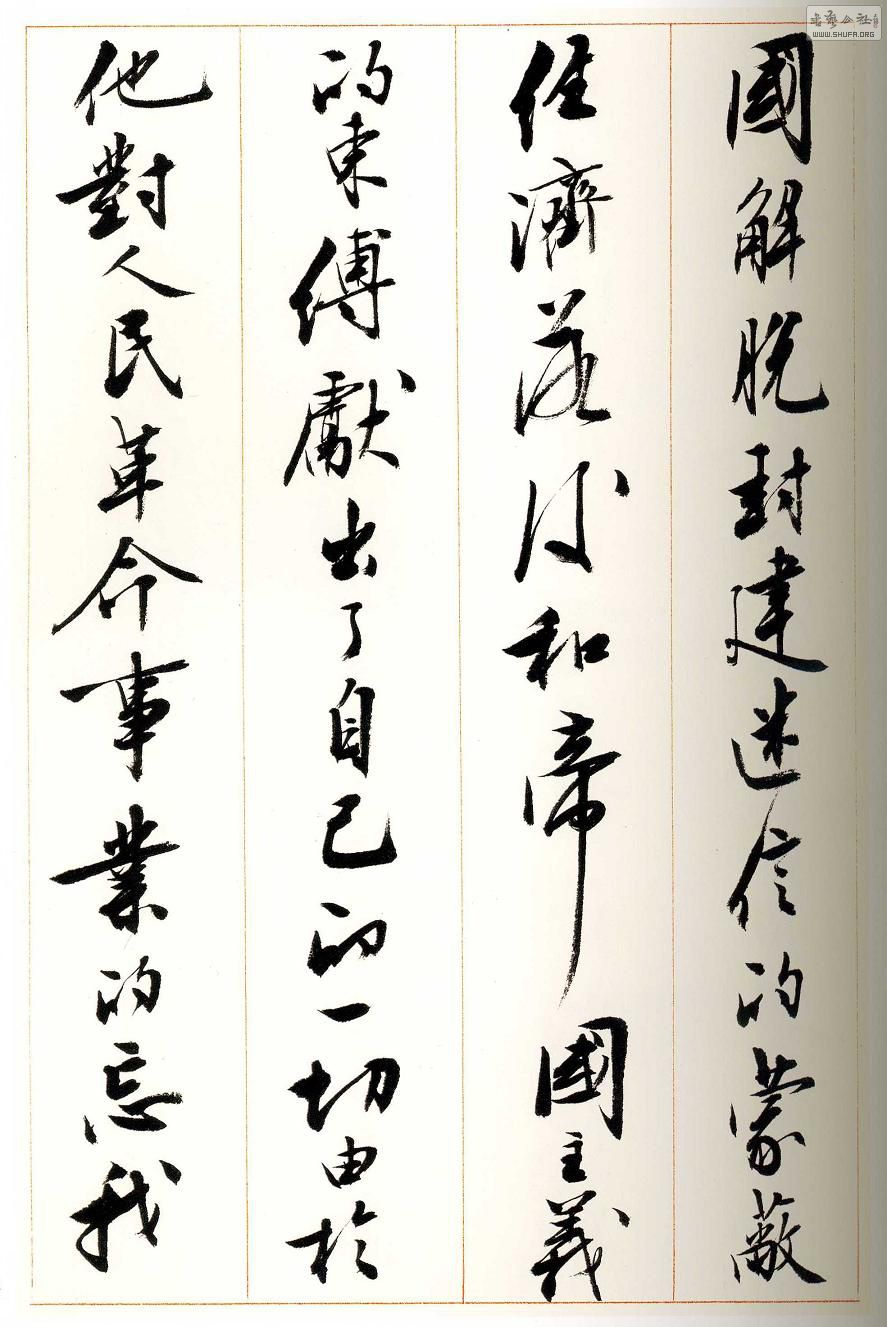 國解脫封建迷信的蒙蔽
經濟落後和帝國主義
的束縛獻出了自己的一切由於
他對人民革命事業的忘我
書藝公社
WWW.SHUFA.ORG